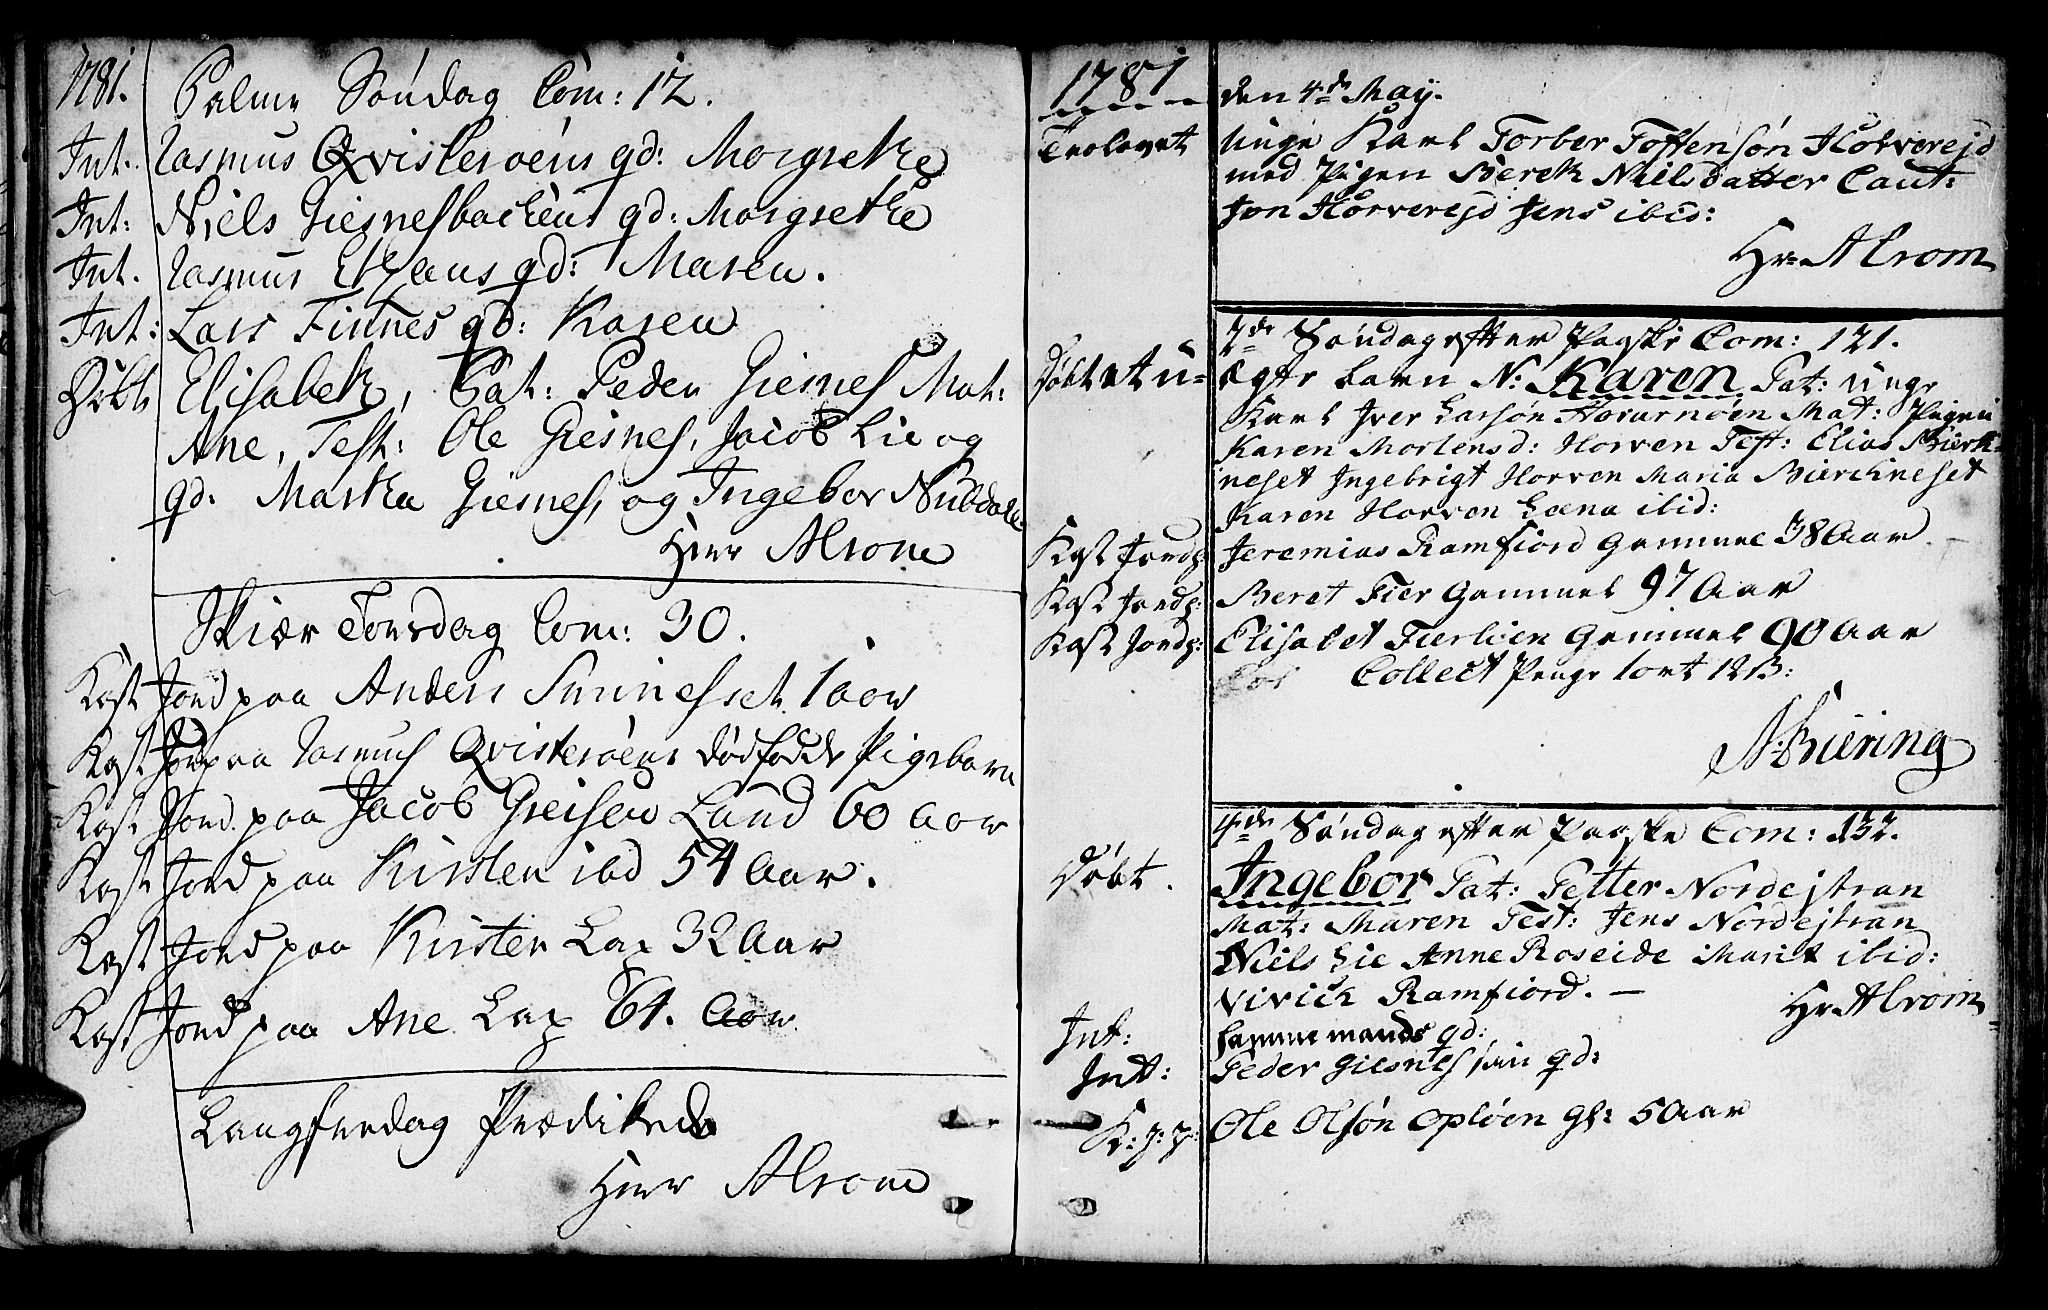 1781.
Palme Søndag Com: 12.
Int. Rasmus Qvisterøens qd: Margrethe
Int: Niels Giesnesbachens qd: Margrethe
Int. Rasmus qd: Maren.
Int: Lars Finnes qd: Karen
Døbt Elisabeth, Pat: Peder Giesnes Mat:
Ane, Test: Ole Giesnes, Jacob Lie og
qd. Martha Giesnes, og Ingebor Nubdale
Herr Alrom
Skiær Torsdag Com: 30.
Kast Jord paa Anders Sminesset 1 aar
Kast Jord paa Rasmus Qvisterøens dødfødde Pigebarn
Kast Jord paa Jacob Greisen Land 60 aar
Kast Jord paa Kirsten ibd 54 Aar.
Kast Jord paa Kirsten Lap 32 Aar
Kast Jord paa Ane Lap 64. Aar
Langfredag Prædiked
Herr Alrom
1781
den 4de May.
Trolovet unge Karl Torber Toffensøn Horverejd
med Pigen Bereth Nielsdatter Caut:
Jon Horverejd Jens ibid:
Hr. Alrom
2de Søndag efter Paaske Com: 121.
Døbt et u-ægte barn N: Karen Pat: unge
Karl Iver Larsøn Mat: Pigen
Karen Mortensd: Horven Test: Elias Bierk-
neset Ingebrigt Horven Maria Bierchneset
Karen Horven Læna ibid:
Kast Jord p: Jeremias Ramfiord Gammel 78 Aar
Kast Jord p: Beret Fier Gammel 97 Aar
Kast Jord p: Elisabet Fierlien Gammel 90 Aar
Collect Penge 1 ort 12 B:
N: Biering
4de Søndag efter Paaske Com: 132.
Døbt. Ingebor Pat: Petter Nordejtran
Mat: Maren Test: Jens Nordejtran
Niels Lie Anne Roseide Marit ibid:
Vivich Ramfiord. —
Hr. Alrom
Int: samme mands qd:
Int: Peder Giesnes qd:
K: j: p: Ole Olsøn Opløen gl: 5 Aar